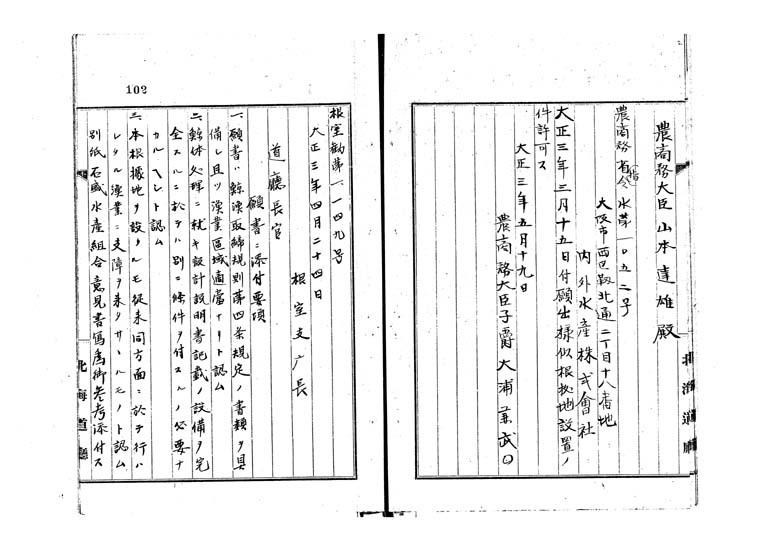 農商務大臣山本達雄殿
農商務省(指)令水第一〇五二号
大阪市西区靱北通二丁目十八番地
内外水産株式會社
大正三年三月十五日付願出様似根拠地設置ノ
件許可ス
大正三年五月十九日
農商務大臣子爵大浦兼武
北海道廳
102
根室勧第一一四九号
大正三年四月二十四日
根室支庁長
道廳長官
願書ニ添付要項
一、願書ハ鯨漁取締規則第四条規定ノ書類ヲ具
備シ且ツ漁業区域適當ナリト認ム
二、鯨体処理ニ就キ設計説明書記載ノ設備ヲ完
全スルニ於テハ別ニ條件ヲ付スルノ必要ナ
カルヘシト認ム
三、本根據地ヲ設クルモ従来同方面ニ於テ行ハ
レタル漁業ニ支障ヲ来タサヽルモノト認ム
別紙石威水産組合意見書写為御参考添付ス
北海道廳